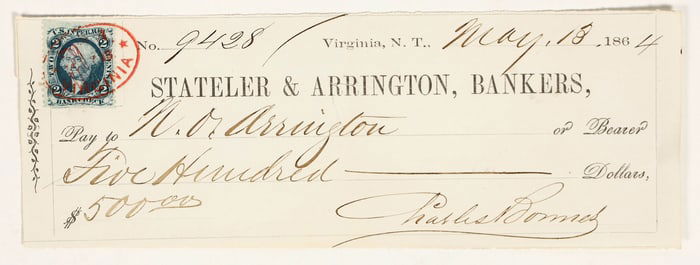 U.S. INTER. REV.
2 2
TWO CENTS
BANK CHECK
No. 9428 Virginia, N. T., May. 13. 1864
STATELER & ARRINGTON, BANKERS,
Pay to N. O. Arrington or Bearer
Five Hundred Dollars,
$500.00
Charles Bonner